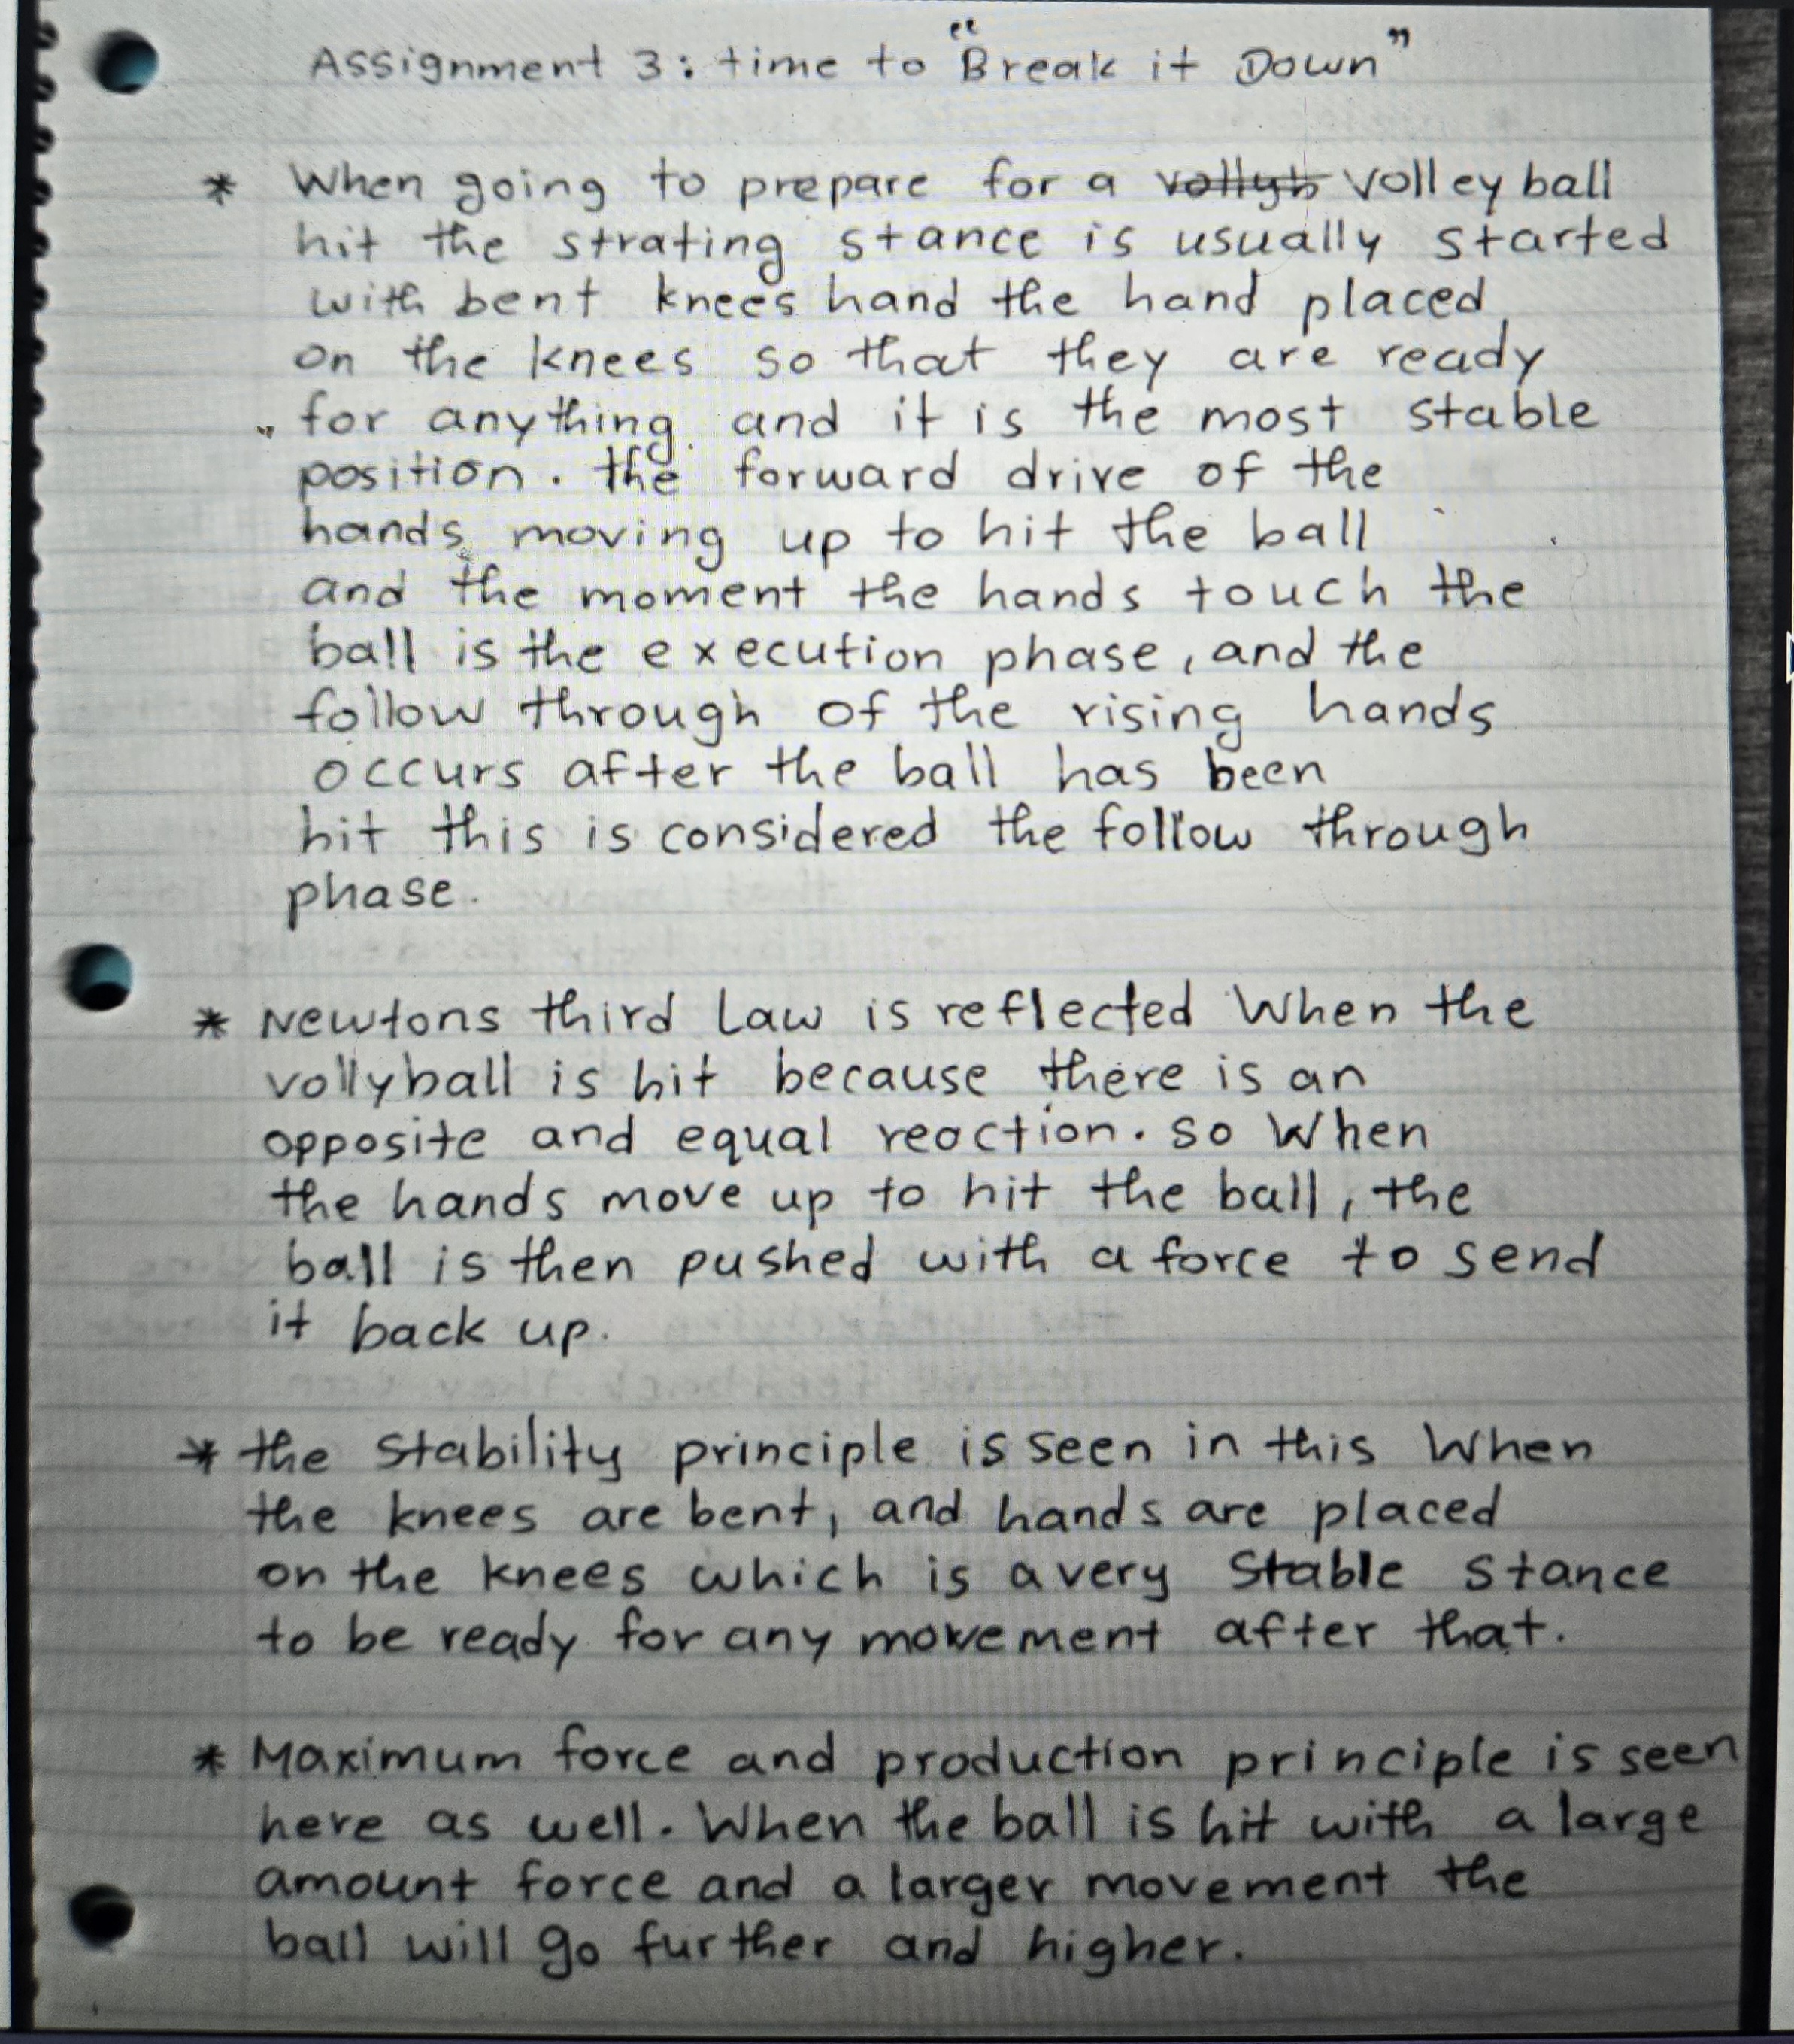 Assignment 3: time to "Break it Down"
* When going to prepare for a vollyb volleyball
hit the strating stance is usually started
with bent knees hand the hand placed
on the knees so that they are ready
for anything and it is the most stable
position. the forward drive of the
hands moving up to hit the ball
and the moment the hands touch the
ball is the execution phase, and the
follow through of the rising hands
occurs after the ball has been
hit this is considered the follow through
phase.
* Newtons third Law is reflected When the
vollyball is hit because there is an
opposite and equal reaction. so When
the hands move up to hit the ball, the
ball is then pushed with a force to send
it back up.
* the stability principle is seen in this When
the knees are bent, and hands are placed
on the knees which is a very stable stance
to be ready for any movement after that.
* Maximum force and production principle is seen
here as well. When the ball is hit with a large
amount force and a larger movement the
ball will go further and higher.